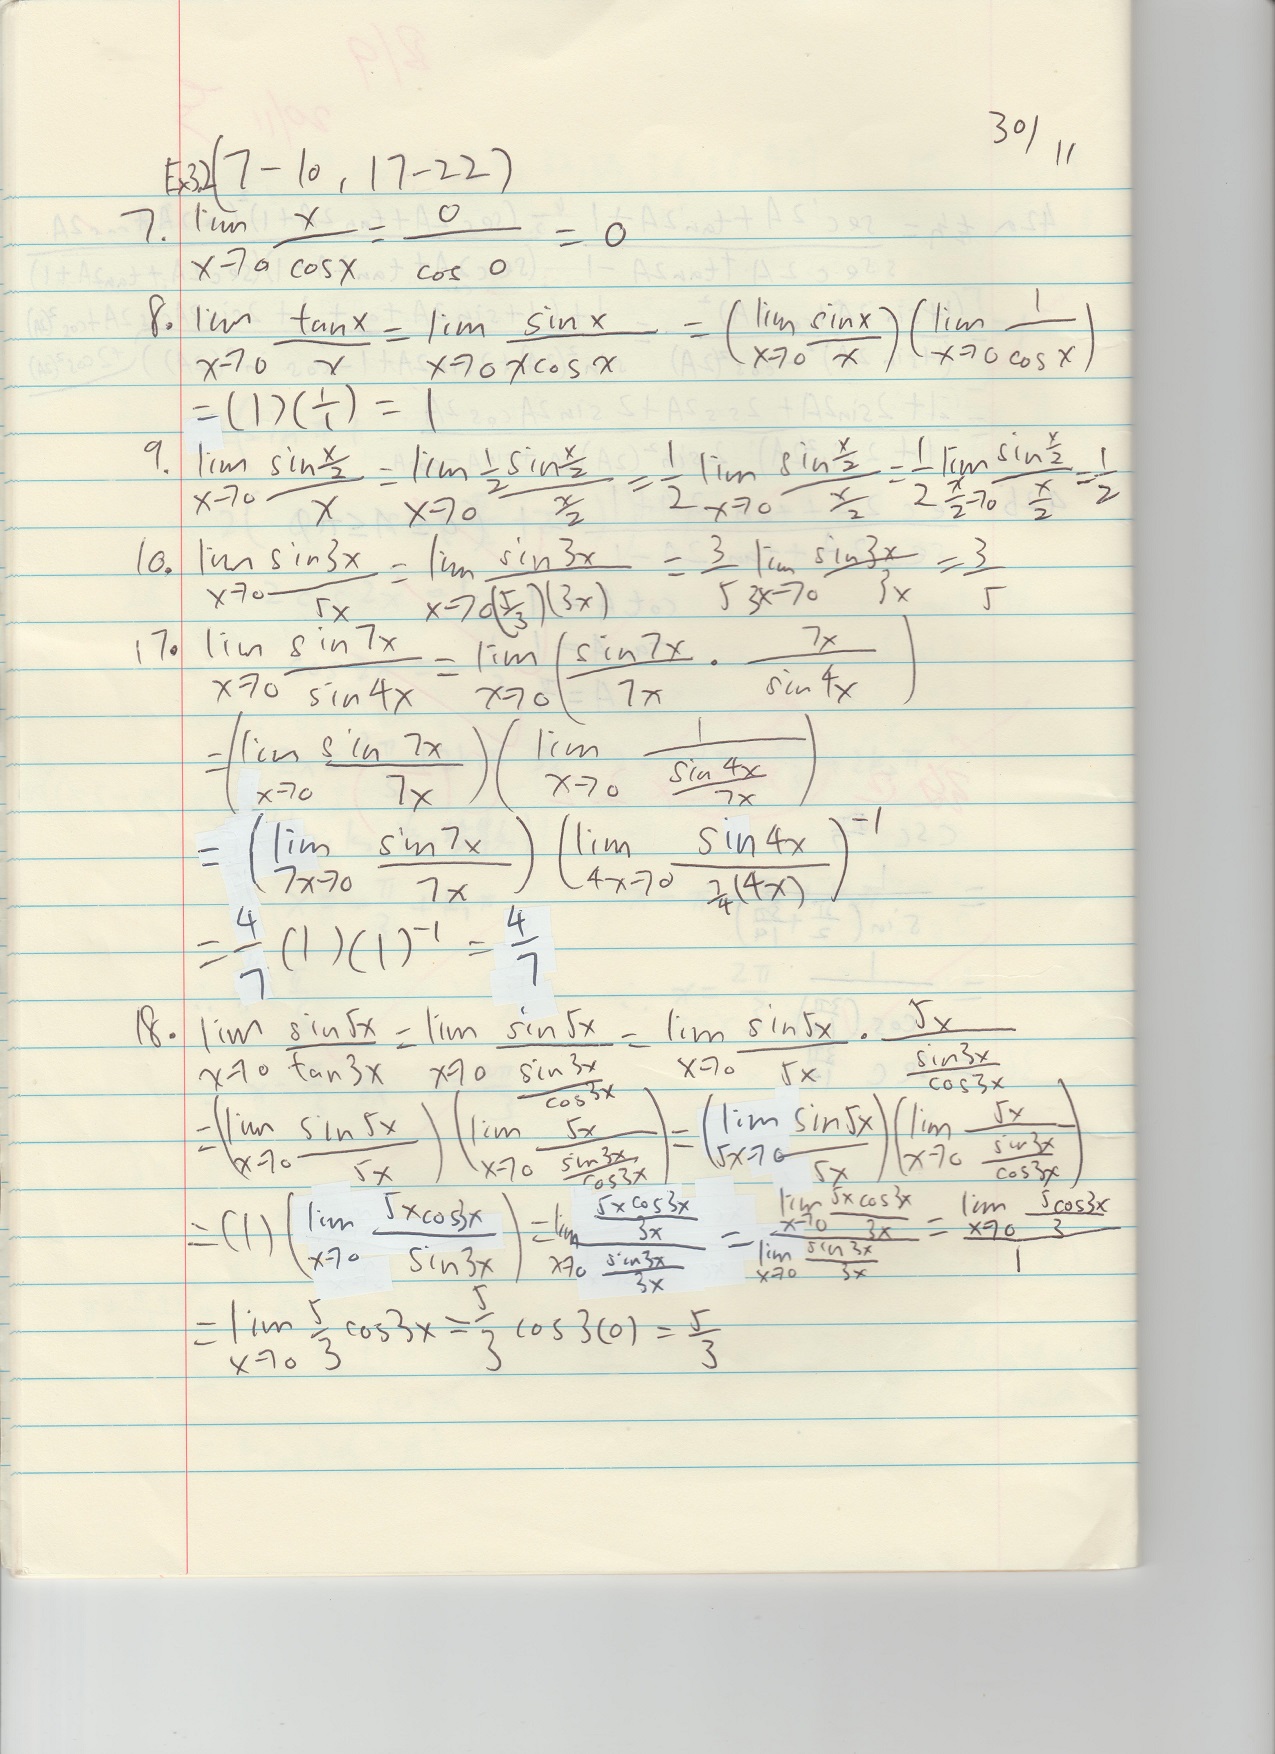 30/11
Ex3.2(7-10, 17-22)
7. lim x→0 x/cosx = 0/cos 0 = 0
8. lim x→0 tanx/x = lim x→0 sinx/xcosx = = (lim x→0 sinx/x)(lim x→0 1/cosx)
= (1)(1/1) = 1
9. lim x→0 sin x/2 / x = lim x→0 1/2 sin x/2 / x/2 = 1/2 lim x→0 sin x/2 / x/2 = 1/2 lim x/2→0 sin x/2 / x/2 = 1/2
10. lim x→0 sin3x/5x = lim x→0 sin3x/(5/3)(3x) = 3/5 lim 3x→0 sin3x/3x = 3/5
17. lim x→0 sin7x/sin4x = lim x→0 (sin7x/7x · 7x/sin4x)
= (lim x→0 sin7x/7x)(lim x→0 1 / sin4x/7x)
= (lim 7x→0 sin7x/7x)(lim 4x→0 sin4x / 7/4(4x))^-1
= 4/7 (1)(1)^-1 = 4/7
18. lim x→0 sin5x/tan3x = lim x→0 sin5x / sin3x/cos3x = lim x→0 sin5x/5x · 5x / sin3x/cos3x
= (lim x→0 sin5x/5x)(lim x→0 5x / sin3x/cos3x) = (lim 5x→0 sin5x/5x)(lim x→0 5x / sin3x/cos3x)
= (1)(lim x→0 5xcos3x/sin3x) = lim x→0 5xcos3x/3x / sin3x/3x = lim x→0 5xcos3x/3x / lim x→0 sin3x/3x = lim x→0 5cos3x/3 / 1
= lim x→0 5/3 cos3x = 5/3 cos3(0) = 5/3